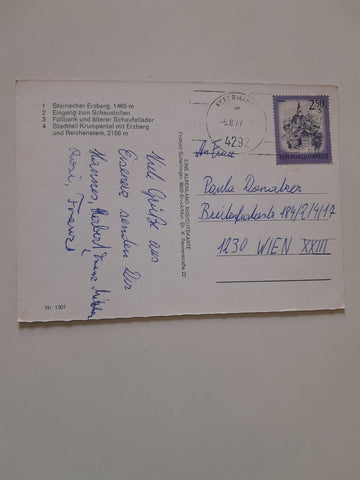 1 Steirischer Erzberg, 1465 m
2 Eingang zum Schaustollen
3 Füllbank und älterer Schaufellader
4 Stadtteil Krumpental mit Erzberg
und Reichenstein, 2166 m
Viel Grüße aus
Eisenerz senden Dir
Hannes, Herbert,
Rosi, Franzi
Nr. 1307
EINE ALPENLAND ANSICHTSKARTE
KEFERMARKT
4292
2.50
S
REPUBLIK ÖSTERREICH
An Frau
Paula Donatzer
184/2/4/17
1230 WIEN XXIII